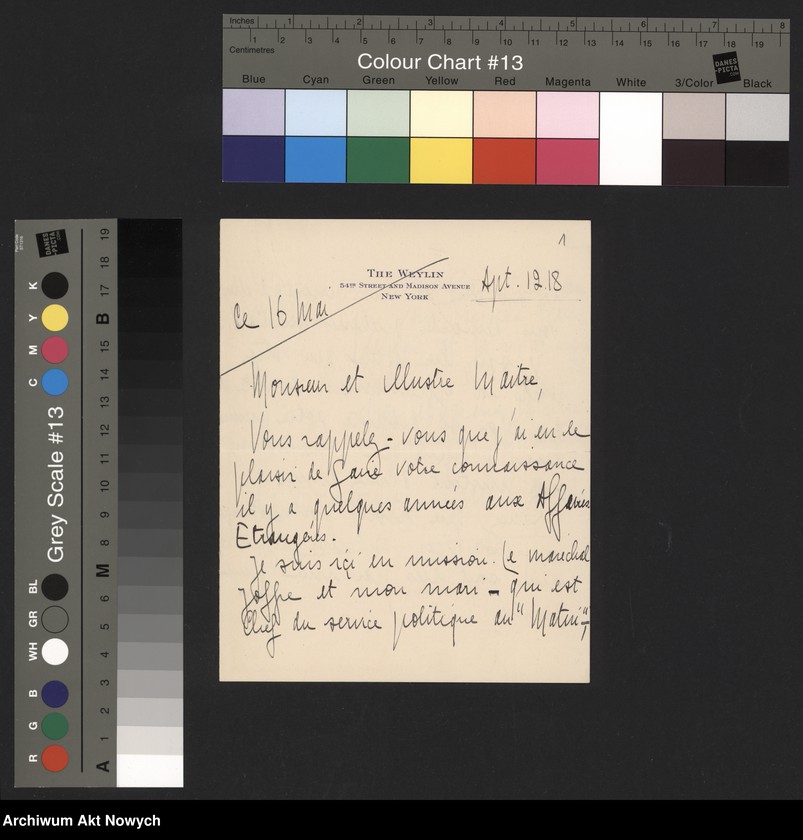 Inches 1 2 3 4 5 6 7 8
Centimetres 1 2 3 4 5 6 7 8 9 10 11 12 13 14 15 16 17 18 19
Colour Chart #13
DANES-PICTA.COM
Blue Cyan Green Yellow Red Magenta White 3/Color Black
Grey Scale #13
DANES-PICTA.COM
R G B WH GR BL C M Y K
A 1 2 3 4 5 6 M 8 9 10 11 12 13 14 15 B 17 18 19
1
THE WEYLIN
54TH STREET AND MADISON AVENUE
NEW YORK
Apt. 1218
Ce 16 Mai
Monsieur et Illustre Maitre,
Vous rappelez-vous que j'ai eu le
plaisir de faire votre connaissance
il y a quelques années aux Affaires
Etrangères.
Je suis ici en mission. Le maréchal
Joffre et mon mari - qui est
Chef du service politique au "Matin"-,
Archiwum Akt Nowych